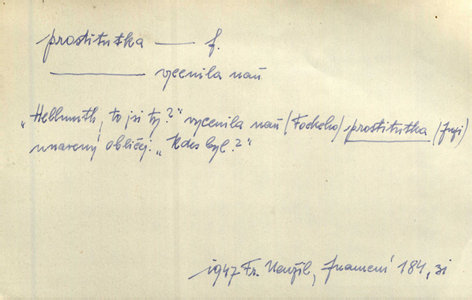 prostitutka — f.
——— vycenila naň
„Hellmuth, to jsi ty?“ vycenila naň (Fockeho) prostitutka (svůj)
unavený obličej. „Kdes byl?“
1947 Fr. Neužil, Znamení 184, si